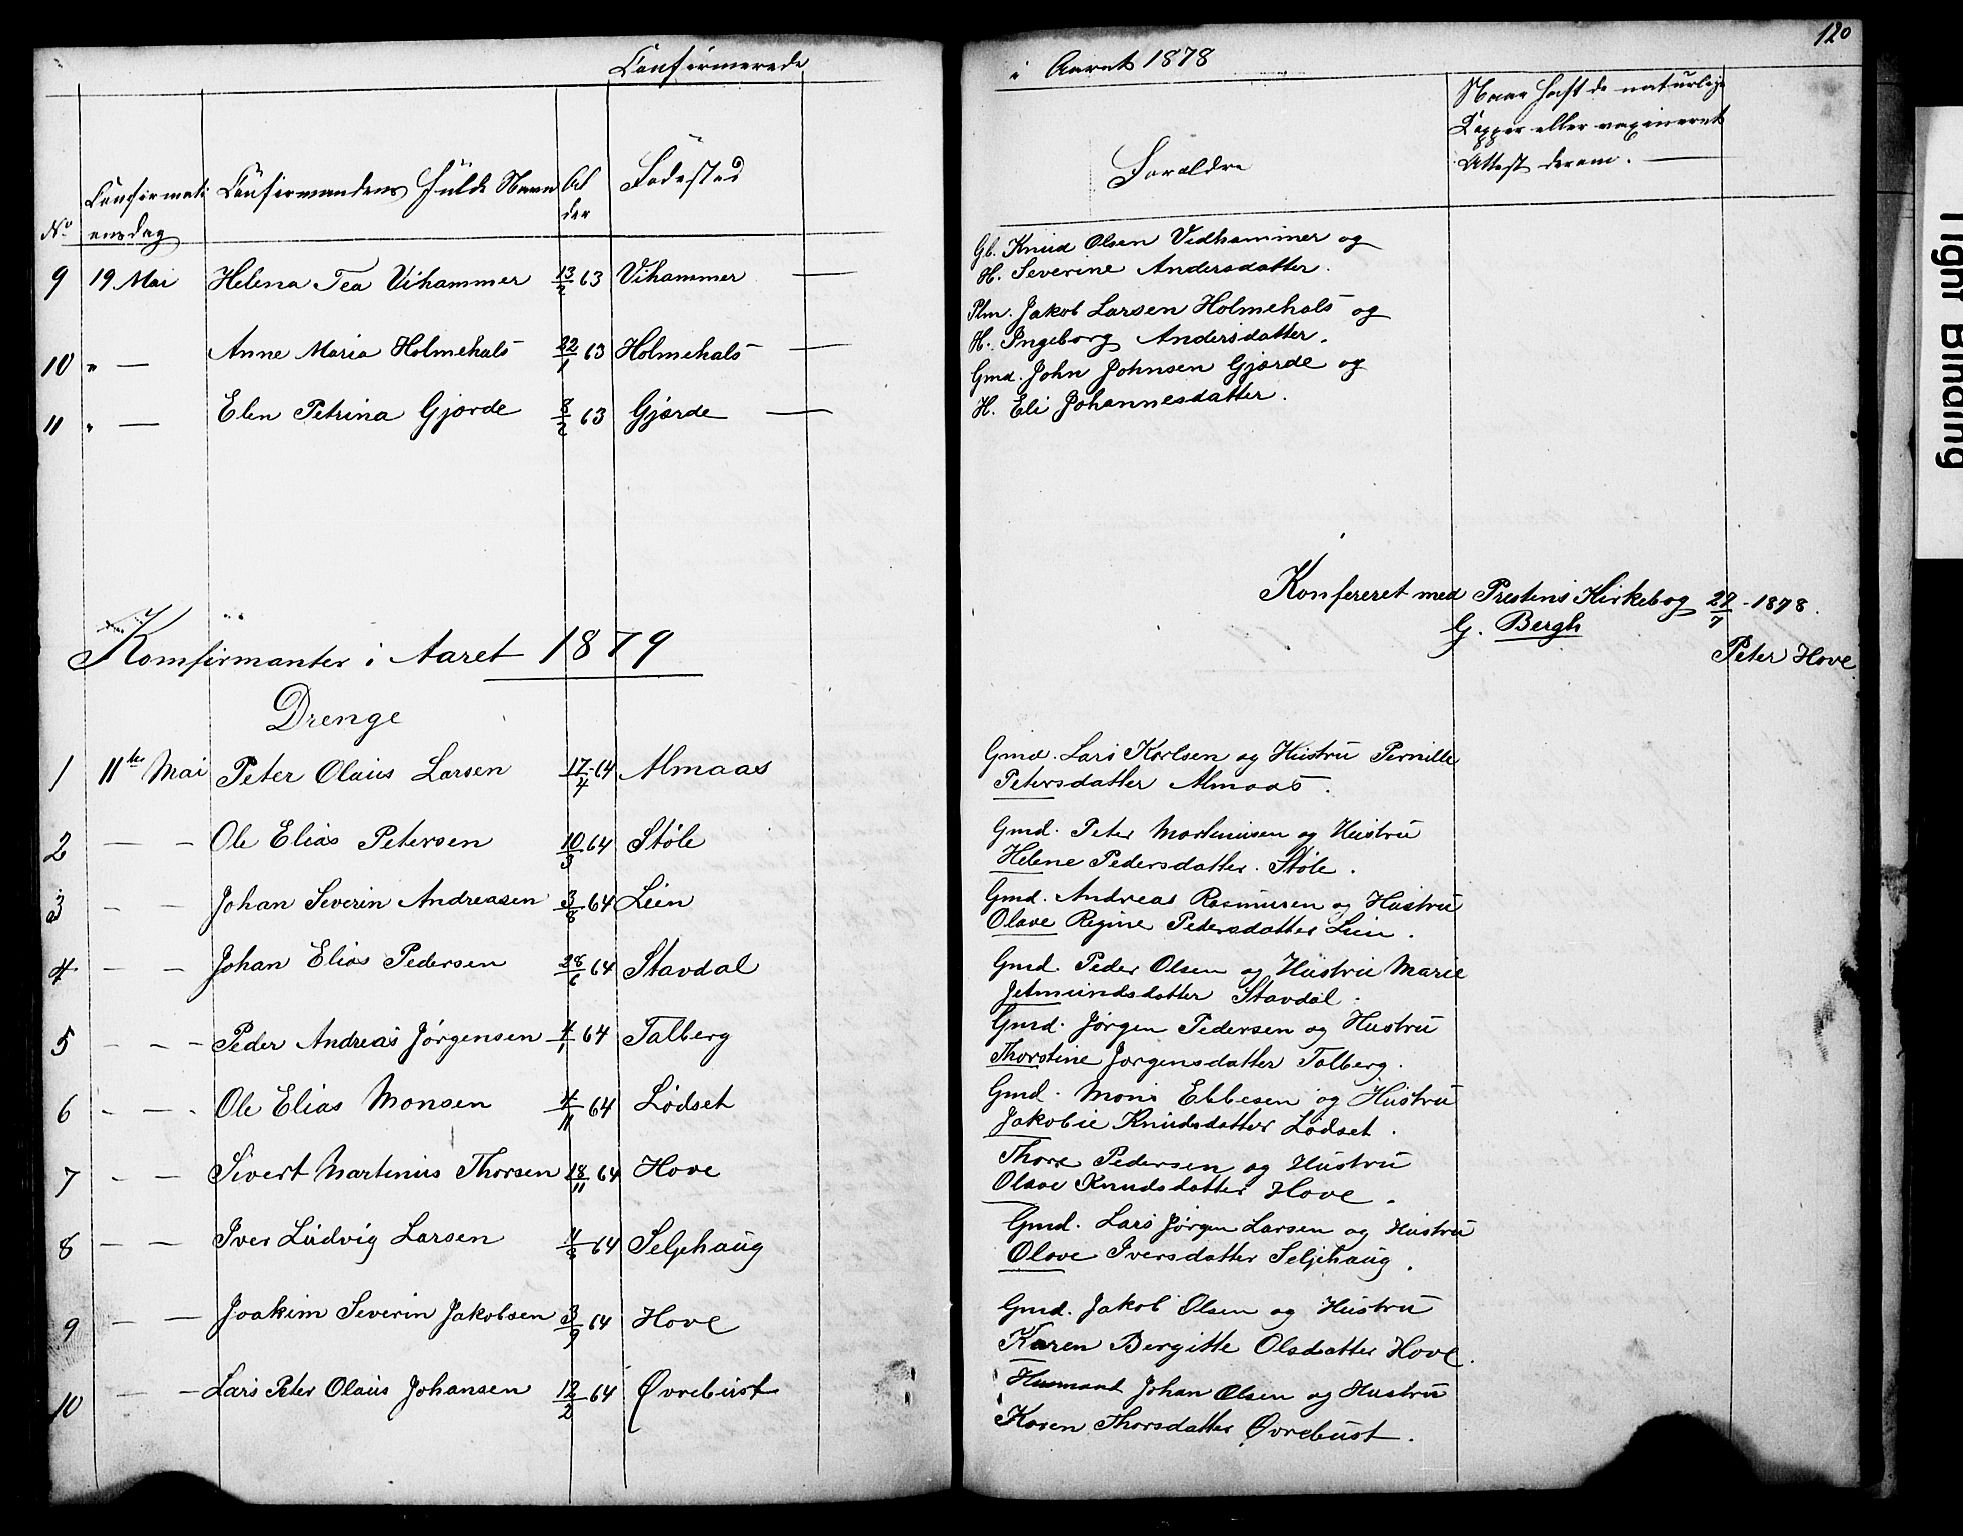 Confirmerede
i Aaret 1878
120
No
Confirmati
onsdag
Confirmandens fulde Navn
Al
der
Fødested
Forældre
Naar haft de naturlige
Kopper eller vaxineret
Attest derom. —
9 19 Mai Helena Tea Vihammer 13/2 63 Vihammer —
Gb. Knud Olsen Vedhammer og
H. Severine Andersdatter.
10 " — Anne Maria Holmehals 22/1 63 Holmehals —
Plm. Jakob Larsen Holmehals og
H. Ingeborg Andersdatter.
11 " — Elen Petrina Gjærde 8/2 63 Gjærde —
Gmd. John Johnsen Gjærde og
H. Eli Johannesdatter.
Konfereret med Prestens Kirkebog 29/7 - 1878.
G. Bergh
Peter Hove
Komfirmanter i Aaret 1879
Drenge
1 11te Mai Peter Olaus Larsen 17/4 64 Almaas
Gmd. Lars Karlsen og Hustru Pernille
Petersdatter Almaas.
2 — — Ole Elias Petersen 10/3 64 Støle
Gmd. Peter Martinusen og Hustru
Helene Pedersdatter. Støle.
3 — — Johan Severin Andreasen 3/8 64 Lien
Gmd. Andreas Rasmusen og Hustru
Olave Regine Pedersdatter Lien.
4 — — Johan Elias Pedersen 28/6 64 Stavdal
Gmd. Peder Olsen og Hustru Marie
Jetmundsdatter Stavdal.
5 — — — Peder Andreas Jørgensen 4/1 64 Talberg
Gmd. Jørgen Pedersen og Hustru
Thorstine Jørgensdatter Talberg.
6 — — — Ole Elias Monsen 4/11 64 Lødset
Gmd. Mons Ebbesen og Hustru
Jakobie Knudsdatter Lødset.
7 — — Sivert Martinus Thorsen 18/11 64 Hove
Thore Pedersen og Hustru
Olave Knudsdatter Hove.
8 — — Iver Ludvig Larsen 64 Seljehaug
Gmd. Lars Jørgen Larsen og Hustru
Olave Iversdatter Seljehaug.
9 — — Joakim Severin Jakobsen 3/9 64 Hove
Gmd. Jakob Olsen og Hustru
Karen Bergitte Olsdatter Hove.
10 — — Lars Peter Olaus Johansen 12/2 64 Øvrebust
Husmand Johan Olsen og Hustru
Karen Thorsdatter Øvrebust.
Tight Binding